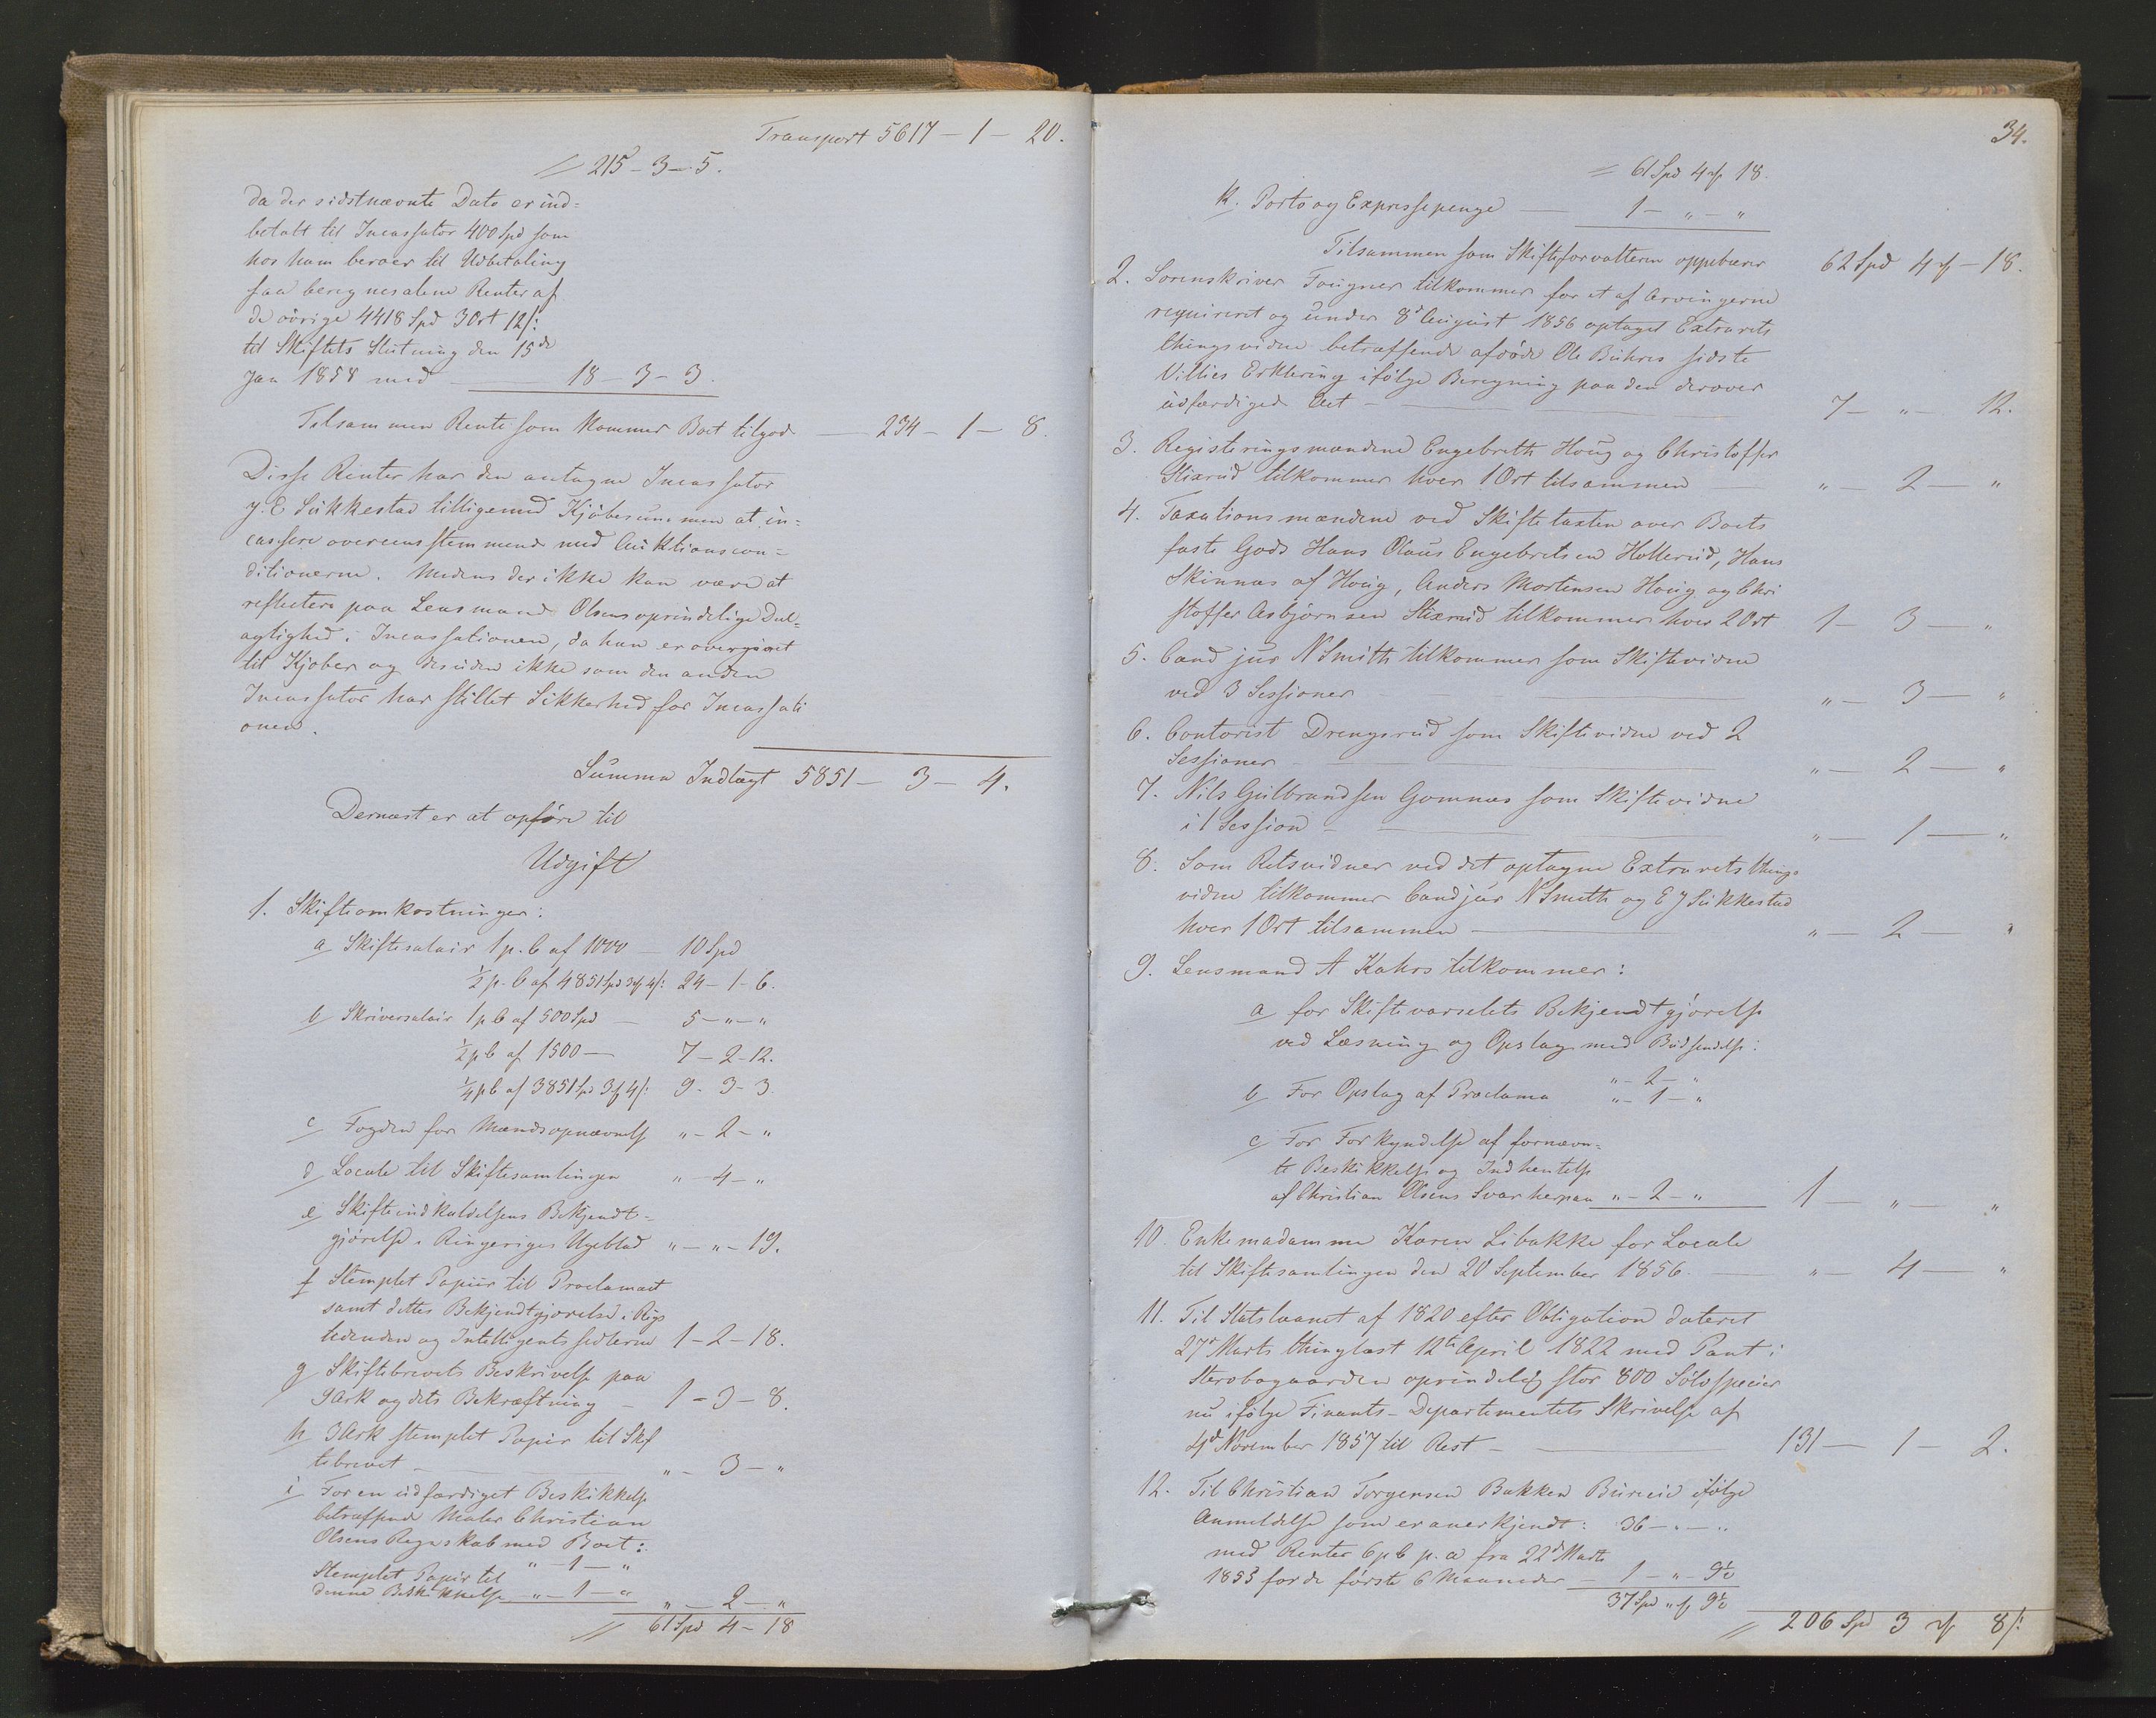 Transport 5617 - 1 - 20.
= 215 - 3 - 5.
da der sidstnævnte Dato er ind=
betalt til Incassator 400 Spd som
hos ham beroer til Udbetaling
saa beregnes alene Renter af
de øvrige 4418 Spd 3 Ort 12 s:
til Skiftets Slutning den 15de
Jan 1858 med - 18 - 3 - 3.
Tilsammen Rente som kommer Boet tilgode - 234 - 1 - 8.
Disse Renter har den antagne Incassator
J. E Sukkestad tilligemed Kjøbesummen at in=
cassere overeensstemmende med Auktionscon=
ditionerne. Medens der ikke kan være at
reflectere paa Lensmand Olsens oprindelige Del=
agtighed i Incassationen, da han er overgaaet
til Kjøber og desuden ikke som den anden
Incassator har stillet Sikkerhed for Incassati
onen.
Summa Indtægt 5851 - 3 - 4.
Dernæst er at opføre til
Udgift
1. Skifteomkostninger:
a Skiftesalair 1 p. C af 1000 - 10 Spd
½ p. C af 4851 Spd 3 Ort 4 s: 24 - 1 - 6.
b Skriversalair 1 p C af 500 Spd - 5 - " - "
½ p C af 1500 - 7 - 2 - 12.
¼ p C af 3851 Spd 3 Ort 4 s: 9 - 3 - 3.
c Fogden for Mændsopnævnelse " - 2 - "
d Locale til Skiftesamlingen " - 4 - "
e Skifteindkaldelsens Bekjendt=
gjørelse i Ringeriges Ugeblad " - " - 19.
f Stemplet Papiir til Proclamaet
samt dettes Bekjendtgjørelse i Rigs
tidenden og Intelligentssedlerne 1 - 2 - 18.
g Skiftebrevets Beskrivelse paa
9 Ark og dets Bekræftning - 1 - 3 - 8.
h 3 Ark stemplet Papir til Skif
tebrevet - " - 3 - "
i For en udfærdiget Beskikkelse
betræffende Maler Christian
Olsens Regnskab med Boet: " - 1 - "
Stemplet Papir til
denne Beskikkelse - " - 1 - " " - 2 - "
= 61 Spd 4 - 18
34.
= 61 Spd 4 Ort 18.
k. Porto og Expressepenge - 1 - " - "
Tilsammen som Skifteforvalteren oppebærer 62 Spd 4 Ort - 18.
2. Sorenskriver Fougner tilkommer for et af Arvingerne
requireret og under 8de August 1856 optaget Extrarets
thingsvidne betræffende afdøde Ole Buhres sidste
Villies Erklæring ifølge Beregning paa den derover
udfærdigede Act - 7 - " - 12.
3. Registeringsmændene Engebreth Houg og Christoffer
Stixrud tilkommer hver 1 Ort tilsammen " - 2 - "
4. Taxationsmændene ved Skiftetaxten over Boets
faste Gods Hans Olaus Engebretsen Hollerud, Hans
Skinnæs af Houg, Anders Mortensen Houg og Chri
stoffer Asbjørnsen Stixrud tilkommer hver 2 Ort 1 - 3 - "
5. Cand jur N Smith tilkommer som Skiftevidne
ved 3 Sessioner - " - 3 - "
6. Contorist Drengsrud som Skiftevidne ved 2
Sessioner - " - 2 - "
7. Nils Gulbrandsen Gomnæs som Skiftevidne
i 1 Session - " - 1 - "
8. Som Retsvidner ved det optagne Extraretsthings
vidne tilkommer Cand jur N Smith og E J Sukkestad
hver 1 Ort tilsammen - " - 2 - "
9. Lensmand A Kahrs tilkommer:
a for Skiftevarselets Bekjendtgjørelse
ved Læsning og Opslag med Budsendelse:
" - 2 - "
b For Opslag af Proclama " - 1 - "
c For Forkyndelse af fornævn=
te Beskikkelse og Indhentelse
af Christian Olsens Svar herpaa " - 2 - " 1 - " - "
10. Enkemadamme Karen Libakke for Locale
til Skiftesamlingen den 20 September 1856. - " - 4 - "
11. Til Statslaanet af 1820 efter Obligation dateret
27de Marts thinglæst 12te April 1822 med Pant i
Sterobogaarden oprindelig stor 800 Sølvspecier
nu ifølge Finants-Departementets Skrivelse af
4de November 1857 til Rest - 131 - 1 - 2.
12. Til Christian Torgersen Bakken Bureie ifølge
Anmeldelse som er anerkjendt: 36 - " - "
med Renter 6 p C p. a fra 22de Marts
1853 for de første 6 Maaneder - 1 - " - 9½
37 Spd " Ort 9½
= 206 Spd 3 Ort 8 s: